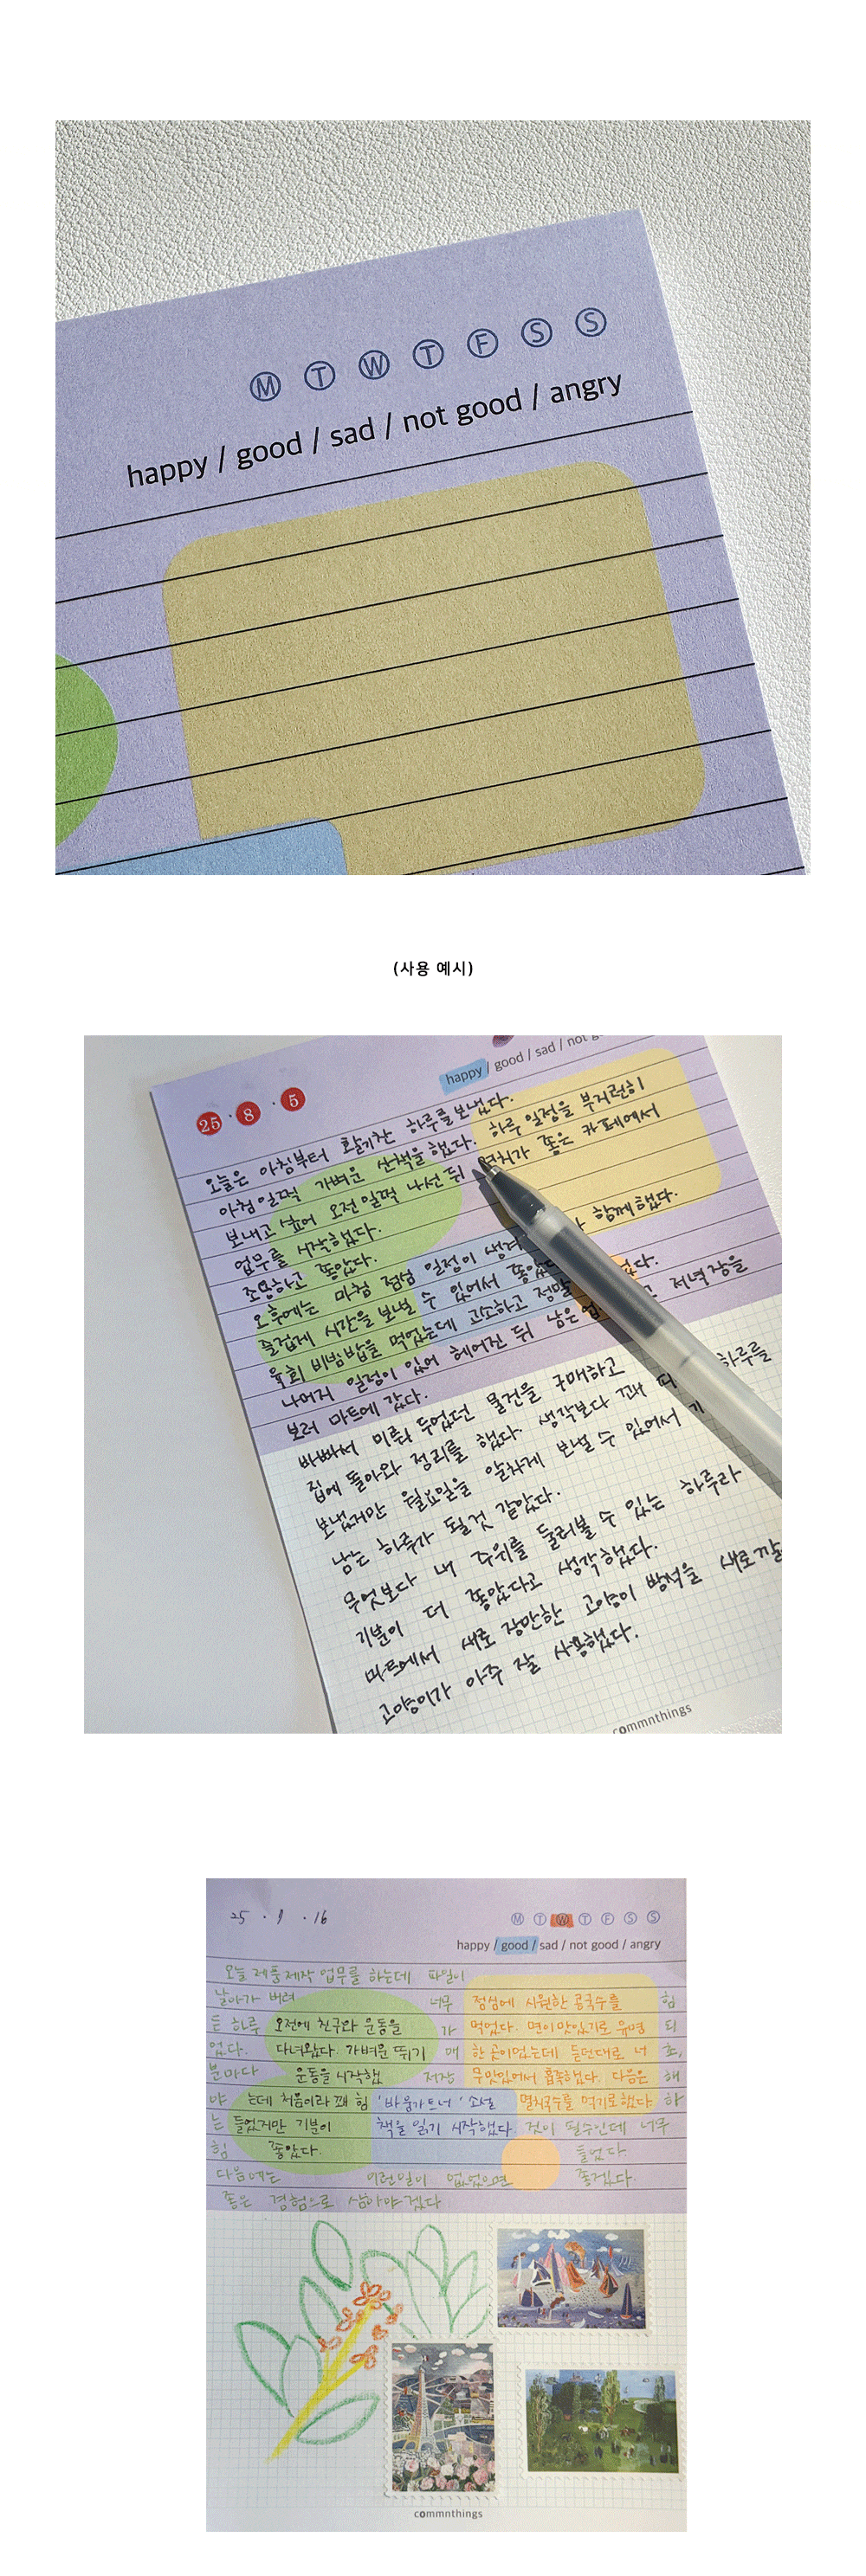 M T W T F S S
happy / good / sad / not good / angry
(사용 예시)
25 · 8 · 5
happy / good / sad / not g
오늘은 아침부터 활기찬 하루를 보냈다.
아침 일찍 가벼운 산책을 했다. 하루 일정을 부지런히
보내고 싶어 오전 일찍 나선 뒤 커피가 좋은 카페에서
업무를 시작했다.
조용하고 좋았다.
오후에는 마침 점심 일정이 생겨 함께했다.
즐겁게 시간을 보낼 수 있어서 좋았다.
육회 비빔밥을 먹었는데 고소하고 정말 었다.
나머지 일정이 있어 헤어진 뒤 남은 업 고 저녁 장을
보러 마트에 갔다.
바빠서 미뤄 두었던 물건을 구매하고
집에 돌아와 정리를 했다. 생각보다 꽤 하루를
보냈지만 월요일을 알차게 보낼 수 있어서 기
남는 하루가 될것 같았다.
무엇보다 내 주위를 둘러볼 수 있는 하루라
기분이 더 좋았다고 생각했다.
마트에서 새로 장만한 고양이 방석을 새로 깔
고양이가 아주 잘 사용했다.
commnthings
25 · 9 · 16
M T W T F S S
happy / good / sad / not good / angry
오늘 제품 제작 업무를 하는데 파일이
날아가 버려 너무 점심에 시원한 콩국수를 힘
든 하루 오전에 친구와 운동을 가 먹었다. 면이 맛있기로 유명 되
었다. 다녀왔다. 가벼운 뛰기 매 한 곳이었는데 들던대로 너 호,
분마다 운동을 시작했 저장 무 맛있어서 흡족했다. 다음은 해
야 는데 처음이라 꽤 힘 '바움가트너' 소설 멸치국수를 먹기로했다 하
는 들었지만 기분이 책을 읽기 시작했다. 것이 필수인데 너무
힘 좋았다. 들었다.
다음에는 이런일이 없었으면 좋겠다.
좋은 경험으로 삼아야겠다
commnthings